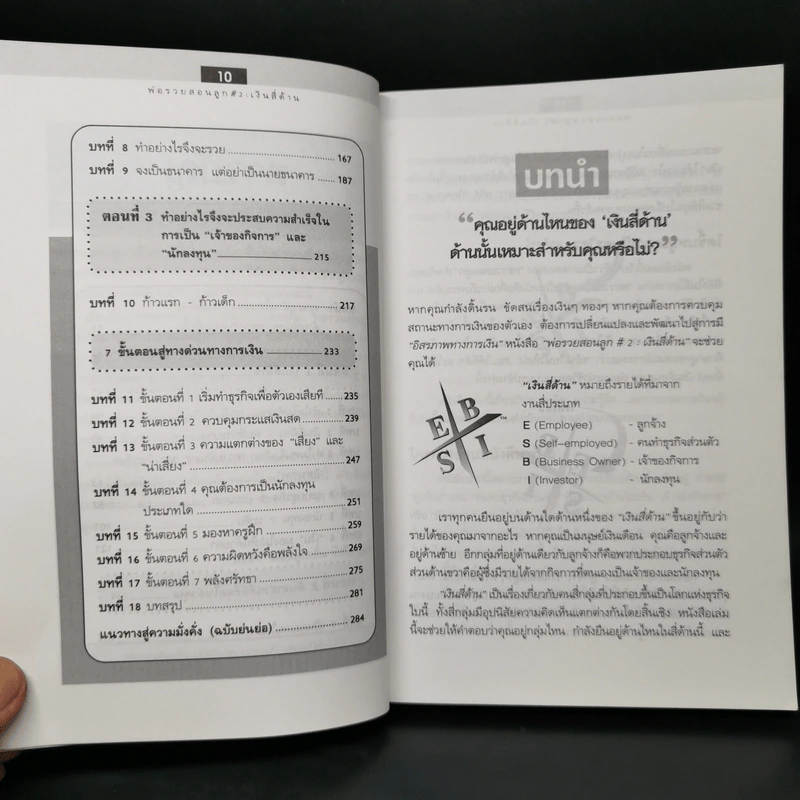 10
พ่อรวยสอนลูก #2 : เงินสี่ด้าน
บทที่ 8 ทำอย่างไรจึงจะรวย 167
บทที่ 9 จงเป็นธนาคาร แต่อย่าเป็นนายธนาคาร 187
ตอนที่ 3 ทำอย่างไรจึงจะประสบความสำเร็จใน
การเป็น “เจ้าของกิจการ” และ
“นักลงทุน” 215
บทที่ 10 ก้าวแรก - ก้าวเด็ก 217
7 ขั้นตอนสู่ทางด่วนทางการเงิน 233
บทที่ 11 ขั้นตอนที่ 1 เริ่มทำธุรกิจเพื่อตัวเองเสียที 235
บทที่ 12 ขั้นตอนที่ 2 ควบคุมกระแสเงินสด 239
บทที่ 13 ขั้นตอนที่ 3 ความแตกต่างของ “เสี่ยง” และ
“น่าเสี่ยง” 247
บทที่ 14 ขั้นตอนที่ 4 คุณต้องการเป็นนักลงทุน
ประเภทใด 251
บทที่ 15 ขั้นตอนที่ 5 มองหาครูฝึก 259
บทที่ 16 ขั้นตอนที่ 6 ความผิดหวังคือพลังใจ 269
บทที่ 17 ขั้นตอนที่ 7 พลังศรัทธา 275
บทที่ 18 บทสรุป 281
แนวทางสู่ความมั่งคั่ง (ฉบับย่นย่อ) 284
บทนำ
“คุณอยู่ด้านไหนของ ‘เงินสี่ด้าน’
ด้านนั้นเหมาะสำหรับคุณหรือไม่?”
หากคุณกำลังดิ้นรน ขัดสนเรื่องเงินๆ ทองๆ หากคุณต้องการควบคุม
สถานะทางการเงินของตัวเอง ต้องการเปลี่ยนแปลงและพัฒนาไปสู่การมี
“อิสรภาพทางการเงิน” หนังสือ “พ่อรวยสอนลูก # 2 : เงินสี่ด้าน” จะช่วย
คุณได้
E B
S I
™
“เงินสี่ด้าน” หมายถึงรายได้ที่มาจาก
งานสี่ประเภท
E (Employee) - ลูกจ้าง
S (Self-employed) - คนทำธุรกิจส่วนตัว
B (Business Owner) - เจ้าของกิจการ
I (Investor) - นักลงทุน
เราทุกคนยืนอยู่บนด้านใดด้านหนึ่งของ “เงินสี่ด้าน” ขึ้นอยู่กับว่า
รายได้ของคุณมาจากอะไร หากคุณเป็นมนุษย์เงินเดือน คุณคือลูกจ้างและ
อยู่ด้านซ้าย อีกกลุ่มที่อยู่ด้านเดียวกับลูกจ้างก็คือพวกประกอบธุรกิจส่วนตัว
ส่วนด้านขวาคือผู้ซึ่งมีรายได้จากกิจการที่ตนเองเป็นเจ้าของและนักลงทุน
“เงินสี่ด้าน” เป็นเรื่องเกี่ยวกับคนสี่กลุ่มที่ประกอบขึ้นเป็นโลกแห่งธุรกิจ
ใบนี้ ทั้งสี่กลุ่มมีอุปนิสัยความคิดเห็นแตกต่างกันโดยสิ้นเชิง หนังสือเล่ม
นี้จะช่วยให้คำตอบว่าคุณอยู่กลุ่มไหน กำลังยืนอยู่ด้านไหนในสี่ด้านนี้ และ